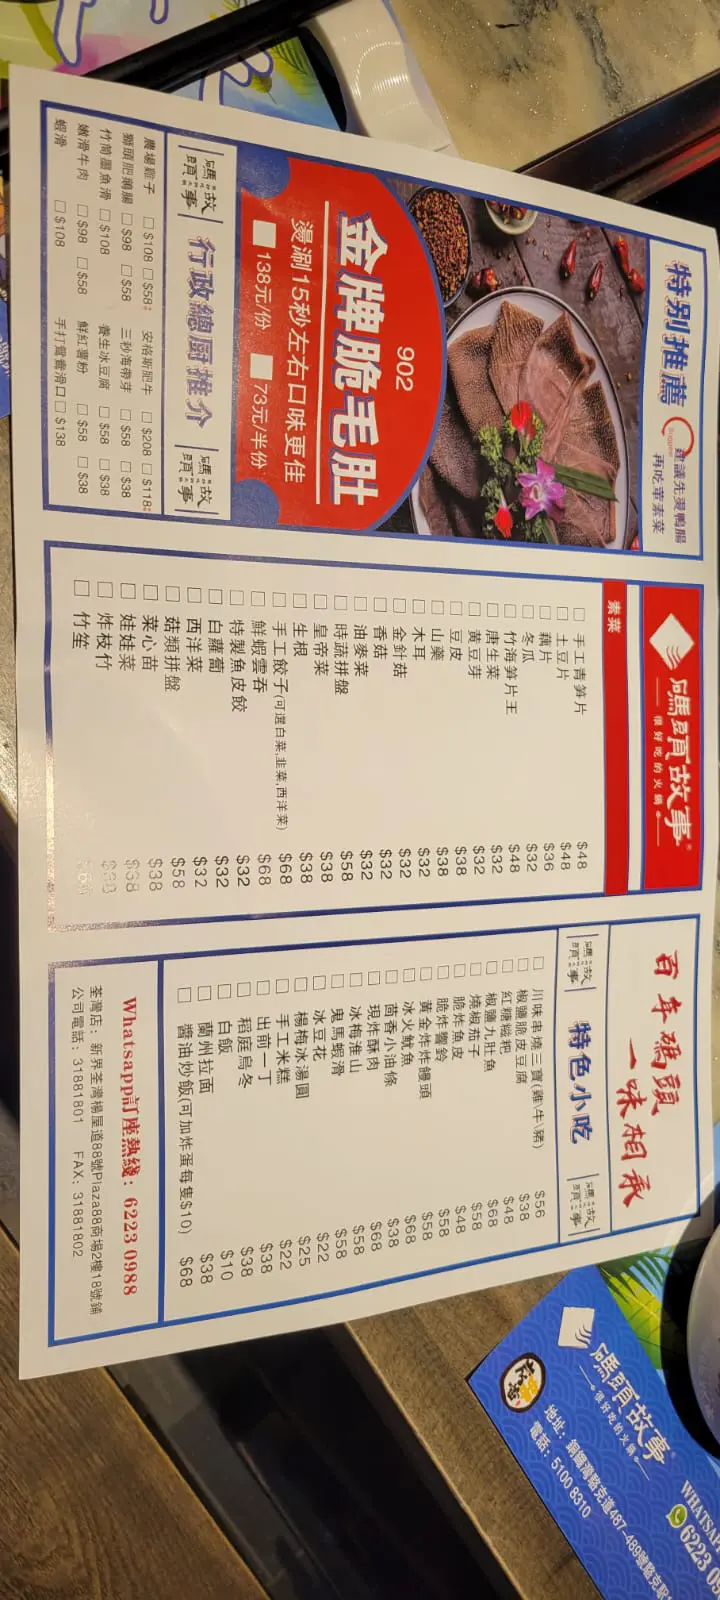 特別推薦
建議先燙鴨腸
再吃葷素菜
902
金牌脆毛肚
燙涮15秒左右口味更佳
138元/份 73元/半份
碼頭故事 行政總厨推介 碼頭故事
農場雞子 $108 $58
安格斯肥牛 $208 $118
獅頭肥鵝腸 $98 $58
三秒海帶芽 $58 $38
竹筒墨魚滑 $108
養生冰豆腐 $58 $38
嫩滑牛肉 $98 $58
鮮紅薯粉 $58 $38
蝦滑 $108
手打鴛鴦滑 $138
碼頭故事
很好吃的火鍋
素菜
手工青笋片 $48
土豆片 $48
藕片 $36
冬瓜 $32
竹海笋片王 $48
唐生菜 $32
黃豆芽 $32
豆皮 $38
山藥 $38
木耳 $32
金針菇 $32
香菇 $32
油麥菜 $32
時蔬拼盤 $58
皇帝菜 $38
生根 $38
手工餃子(可選白菜,韭菜,西洋菜) $68
鮮蝦雲吞 $68
特製魚皮餃 $32
白蘿蔔 $32
西洋菜 $32
菇類拼盤 $58
菜心苗 $38
娃娃菜 $38
炸枝竹 $38
竹笙
百年碼頭
一味相承
碼頭故事 特色小吃 碼頭故事
川味串燒三寶(雞\牛\豬) $56
椒鹽脆皮豆腐 $38
紅糖糍粑 $48
椒鹽九肚魚 $68
燒椒茄子 $58
脆炸魚皮 $48
脆炸響鈴 $58
黃金炸炸饅頭 $58
冰火魷魚 $68
茴香小油條 $38
現炸酥肉 $68
冰梅淮山 $58
鬼馬蝦滑 $58
冰豆花 $22
楊梅冰湯圓 $25
手工米糕 $22
出前一丁 $38
稻庭烏冬 $38
白飯 $10
蘭州拉面 $38
醬油炒飯(可加炸蛋每隻$10) $68
Whatsapp訂座熱綫: 6223 0988
荃灣店: 新界荃灣楊屋道88號Plaza88商場2樓18號鋪
公司電話: 31881801 FAX: 31881802
碼頭故事
很好吃的火鍋
地址: 銅鑼灣駱克道487-489號駱克
電話: 5100 8310
WHATSAPP
6223 09